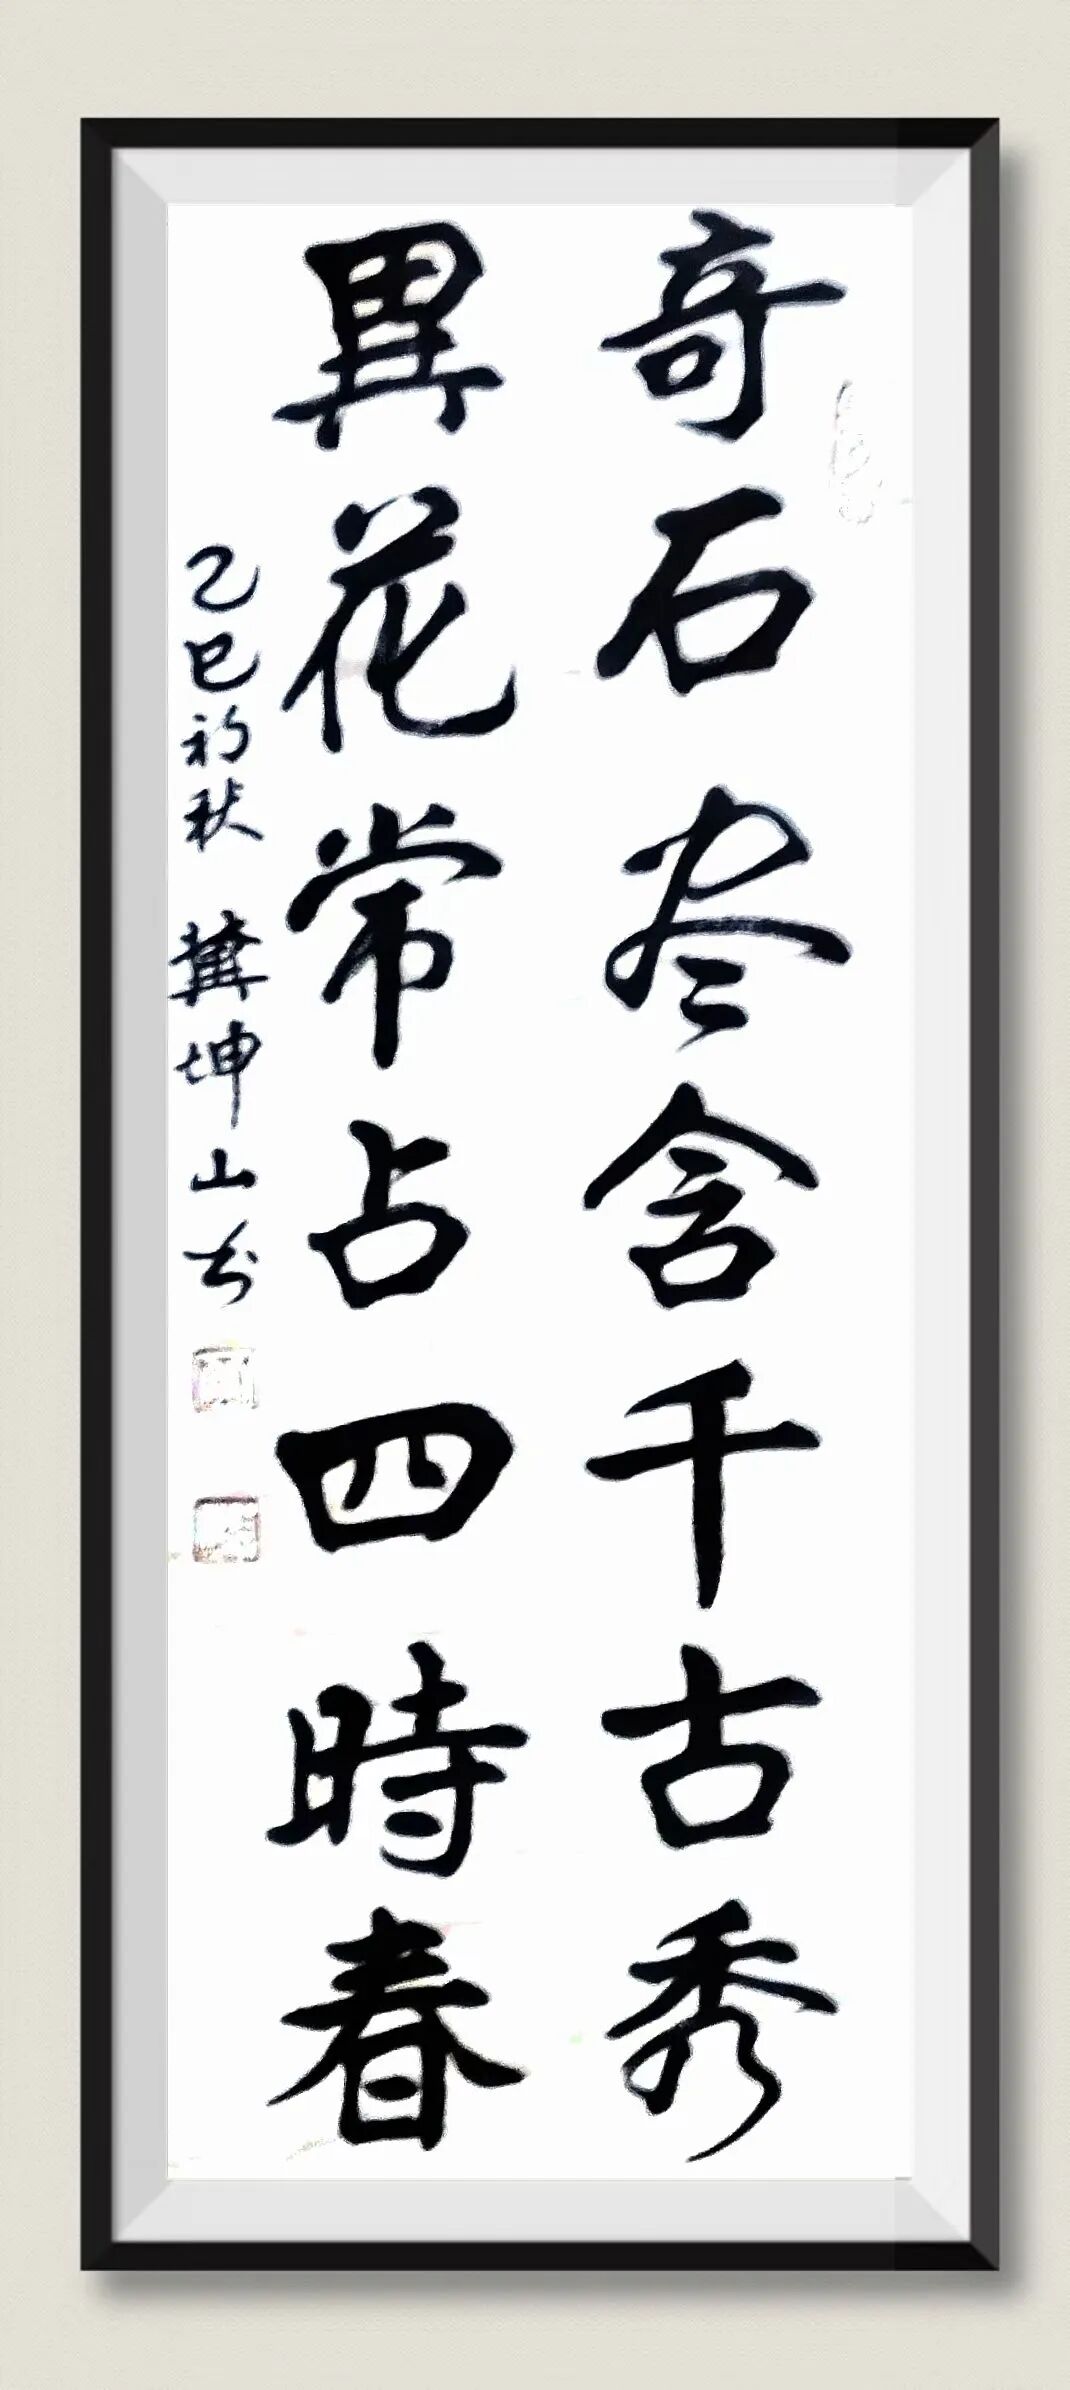 奇石尽含千古秀
異花常占四時春
乙巳初秋 龚坤山书